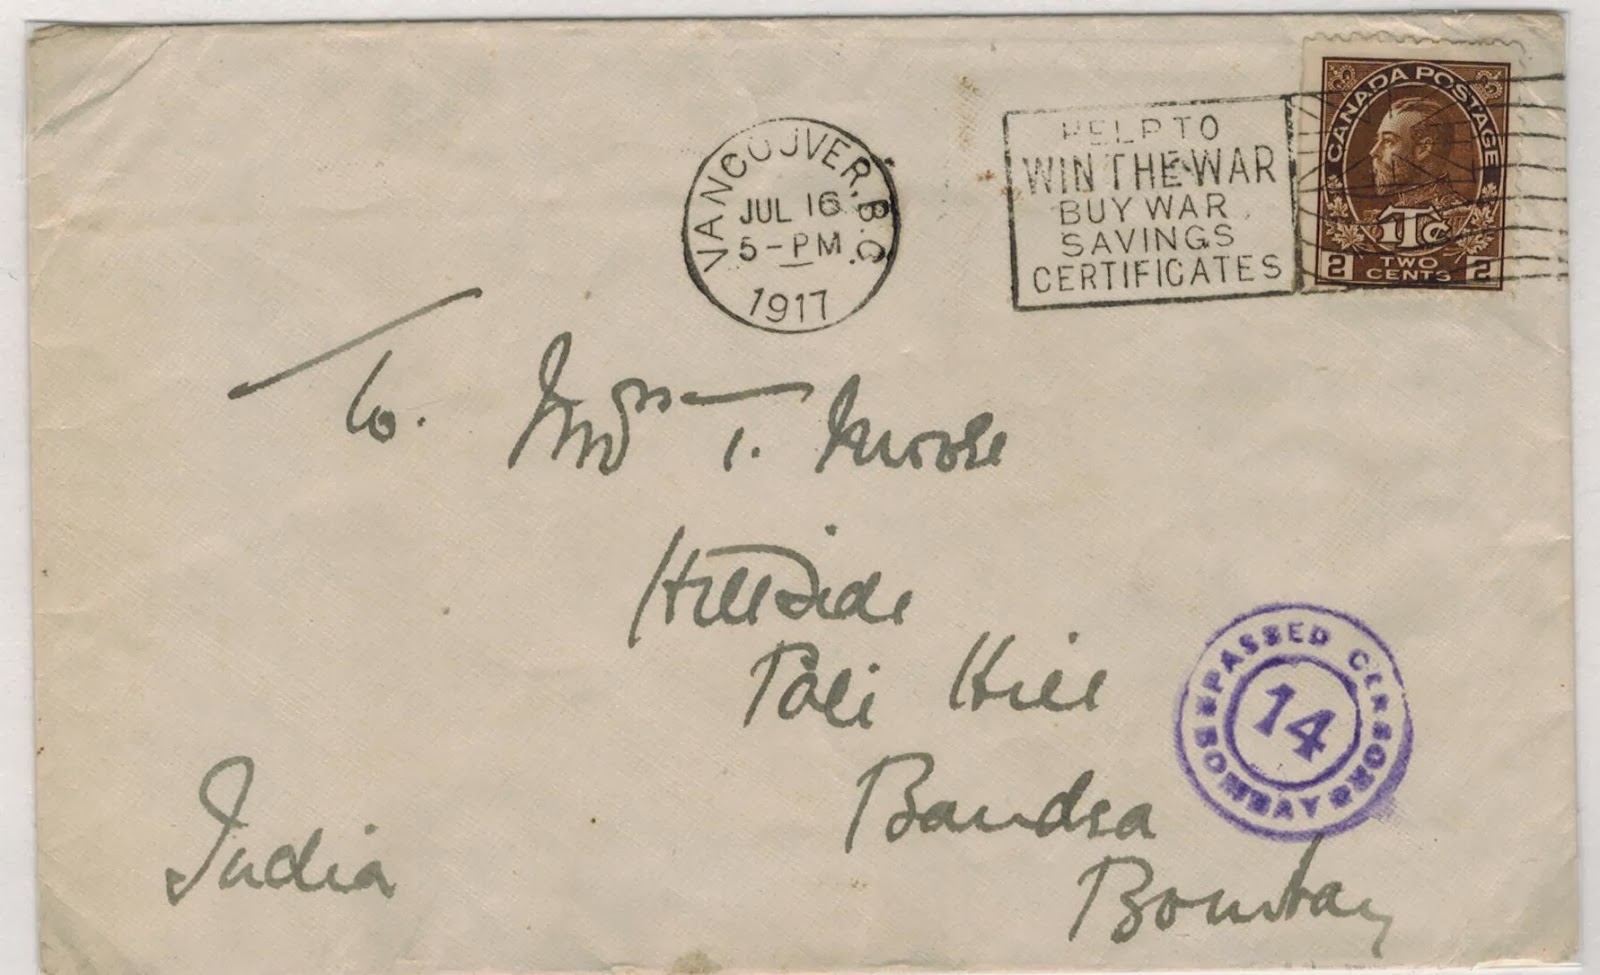 VANCOUVER, B.C.
JUL 16
5-PM
1917
HELP TO
WIN THE WAR
BUY WAR
SAVINGS
CERTIFICATES
CANADA POSTAGE
1Tc
2 TWO CENTS 2
To. T. Moose
Hillside
Pali Hill
Bandra
Bombay
India
PASSED CENSOR
14
BOMBAY